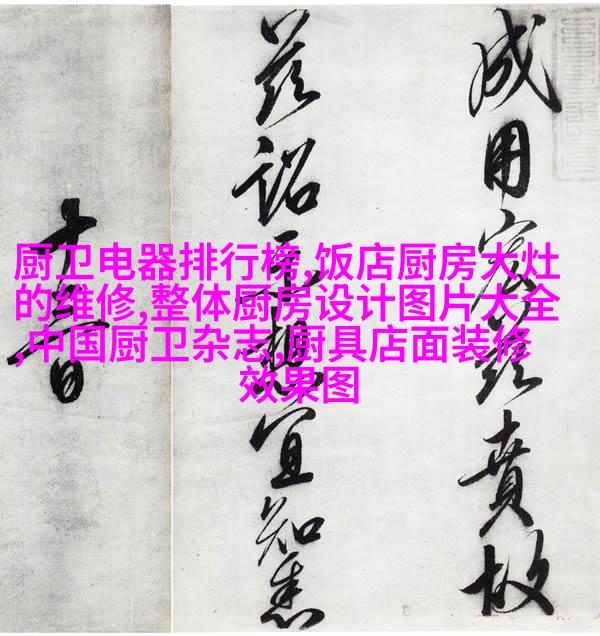 厨卫电器排行榜,饭店厨房大灶
的维修,整体厨房设计图片大全
,中国厨卫杂志,厨具店面装修
效果图
成用宏茲賁故
茲詔示想宜知悉